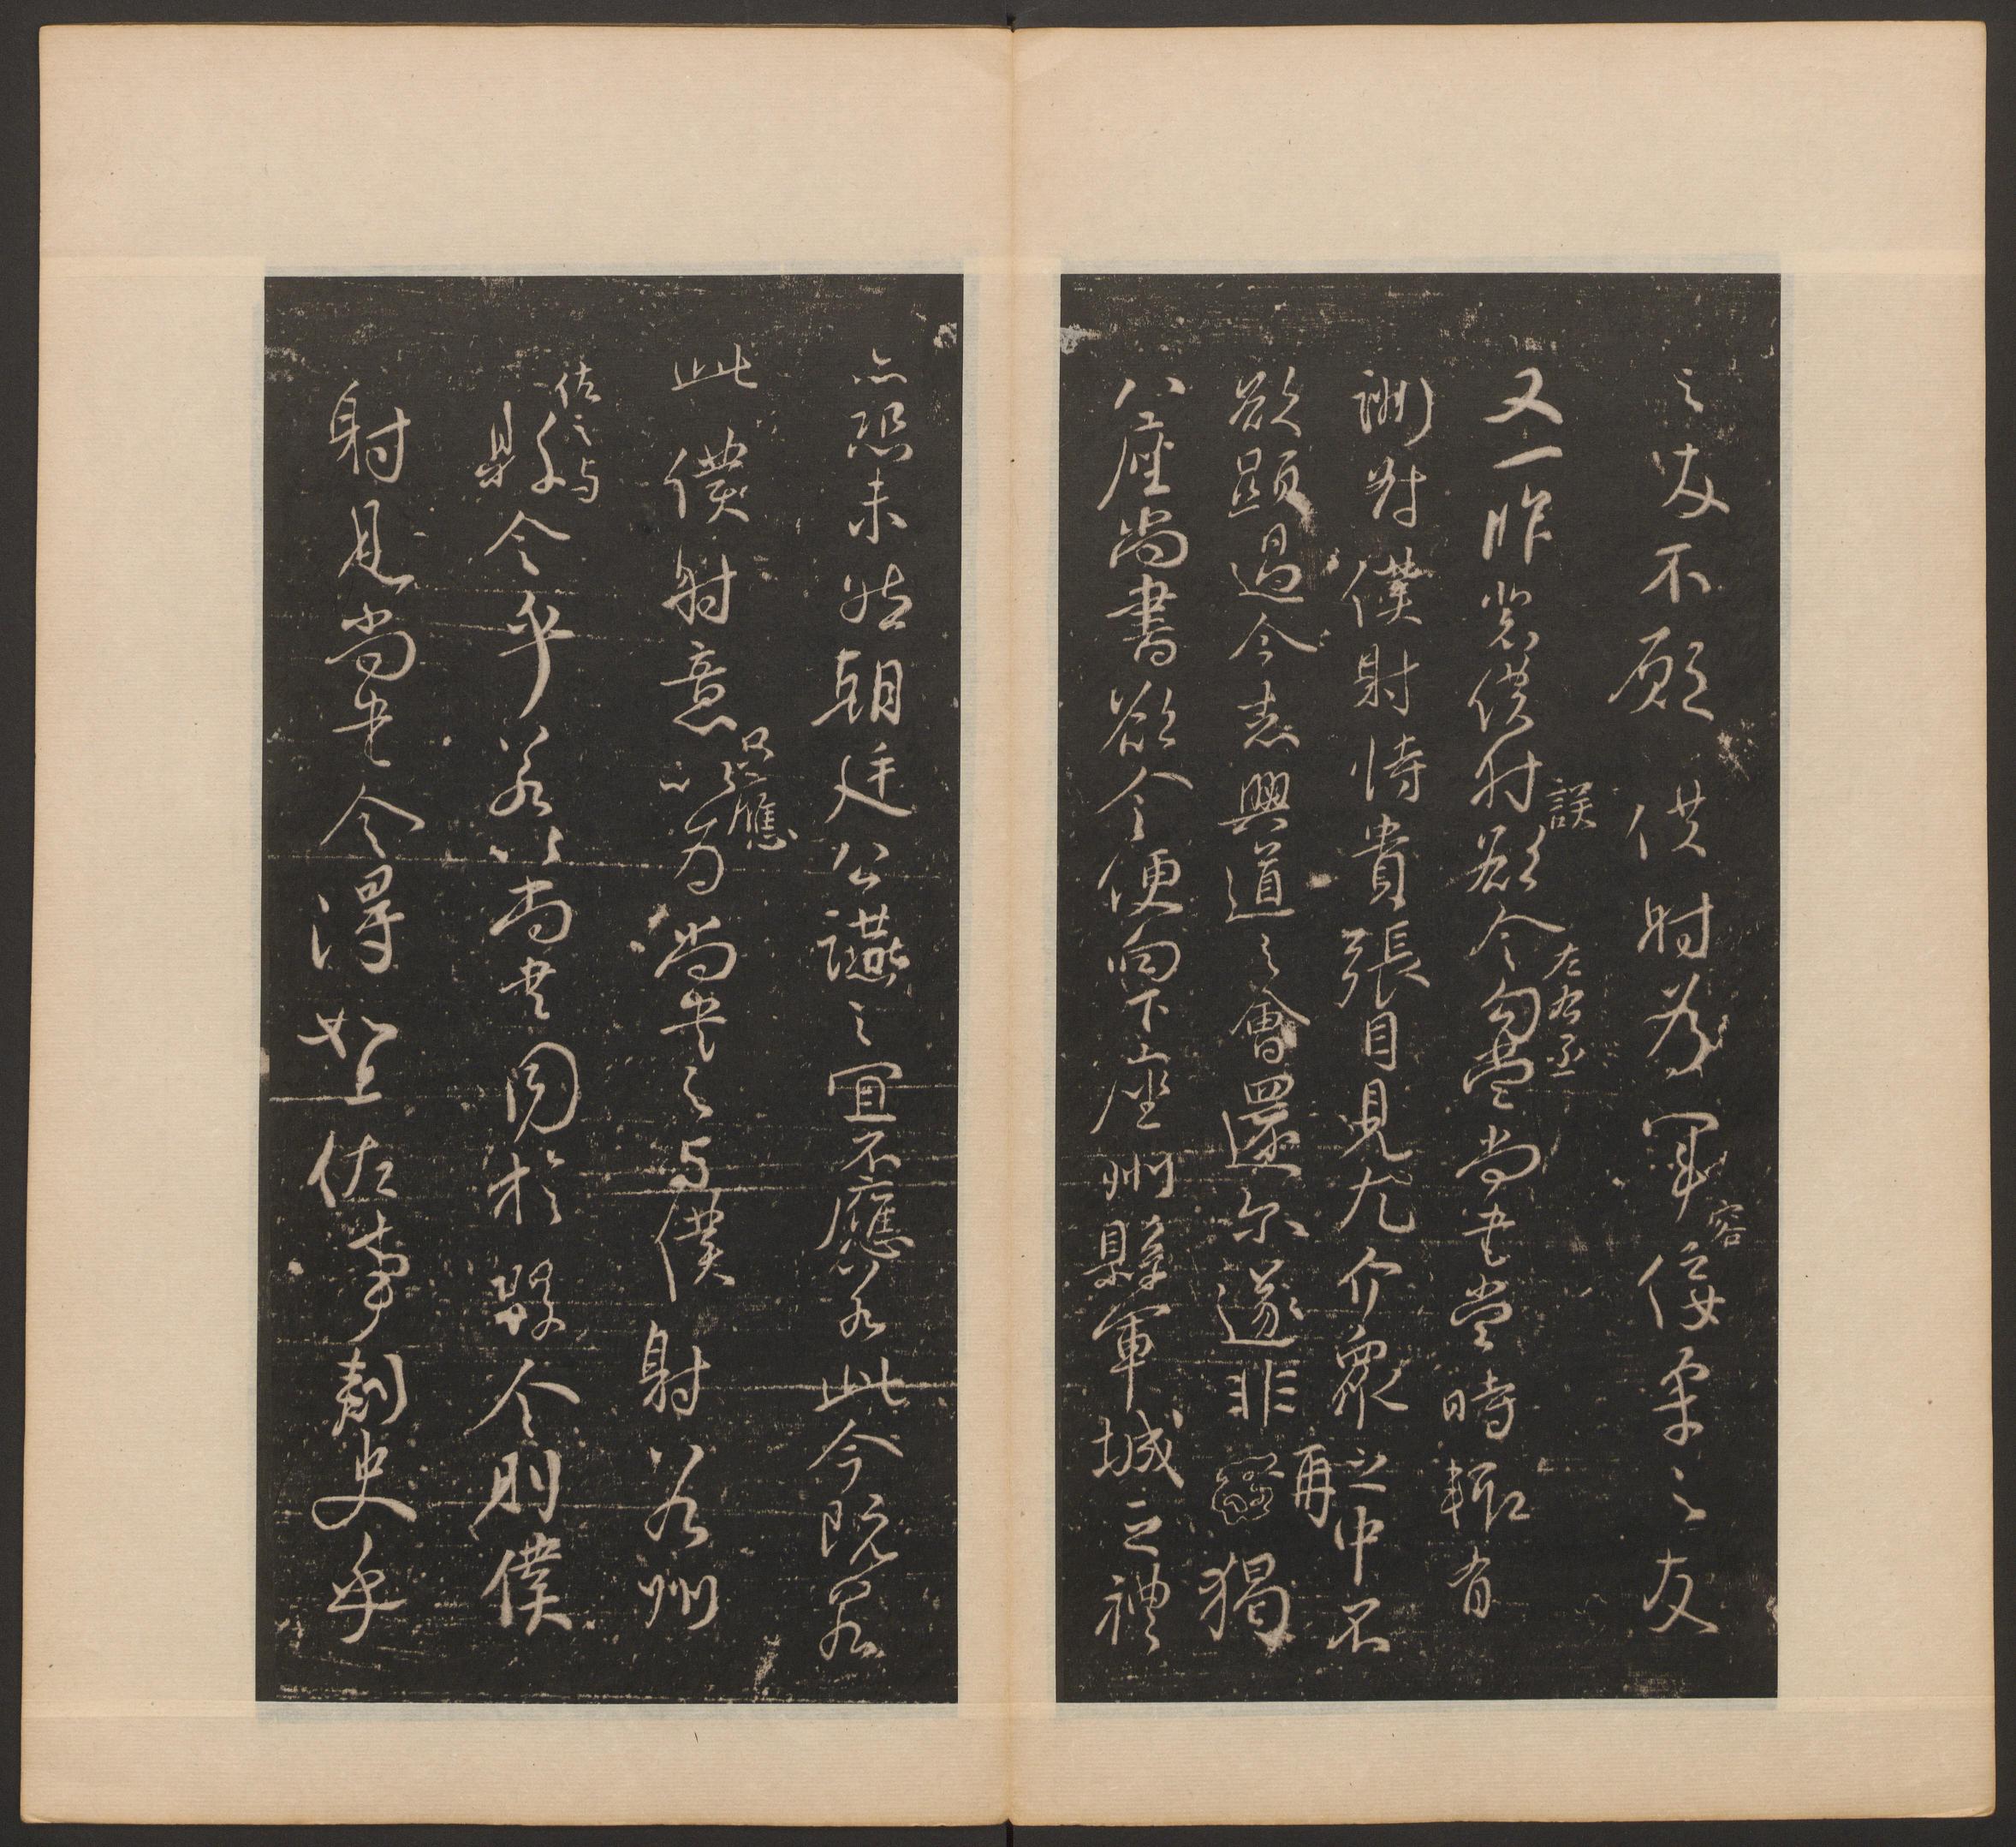 之友不願僕射為軍容佞柔之友
又一昨裴僕射誤欲令左右丞勾當尚書當時輒有
酬對僕射恃貴張目見尤介眾之中不
欲顯過今者興道之會還爾遂非再猲
八座尚書欲令便向下座州縣軍城之禮
亦恐未然朝廷公讌之宜不應若此今既若
此僕射意只應以為尚書之與僕射若州
佐之與縣令乎若以尚書同於縣令則僕
射見尚書令得如上佐事刺史乎